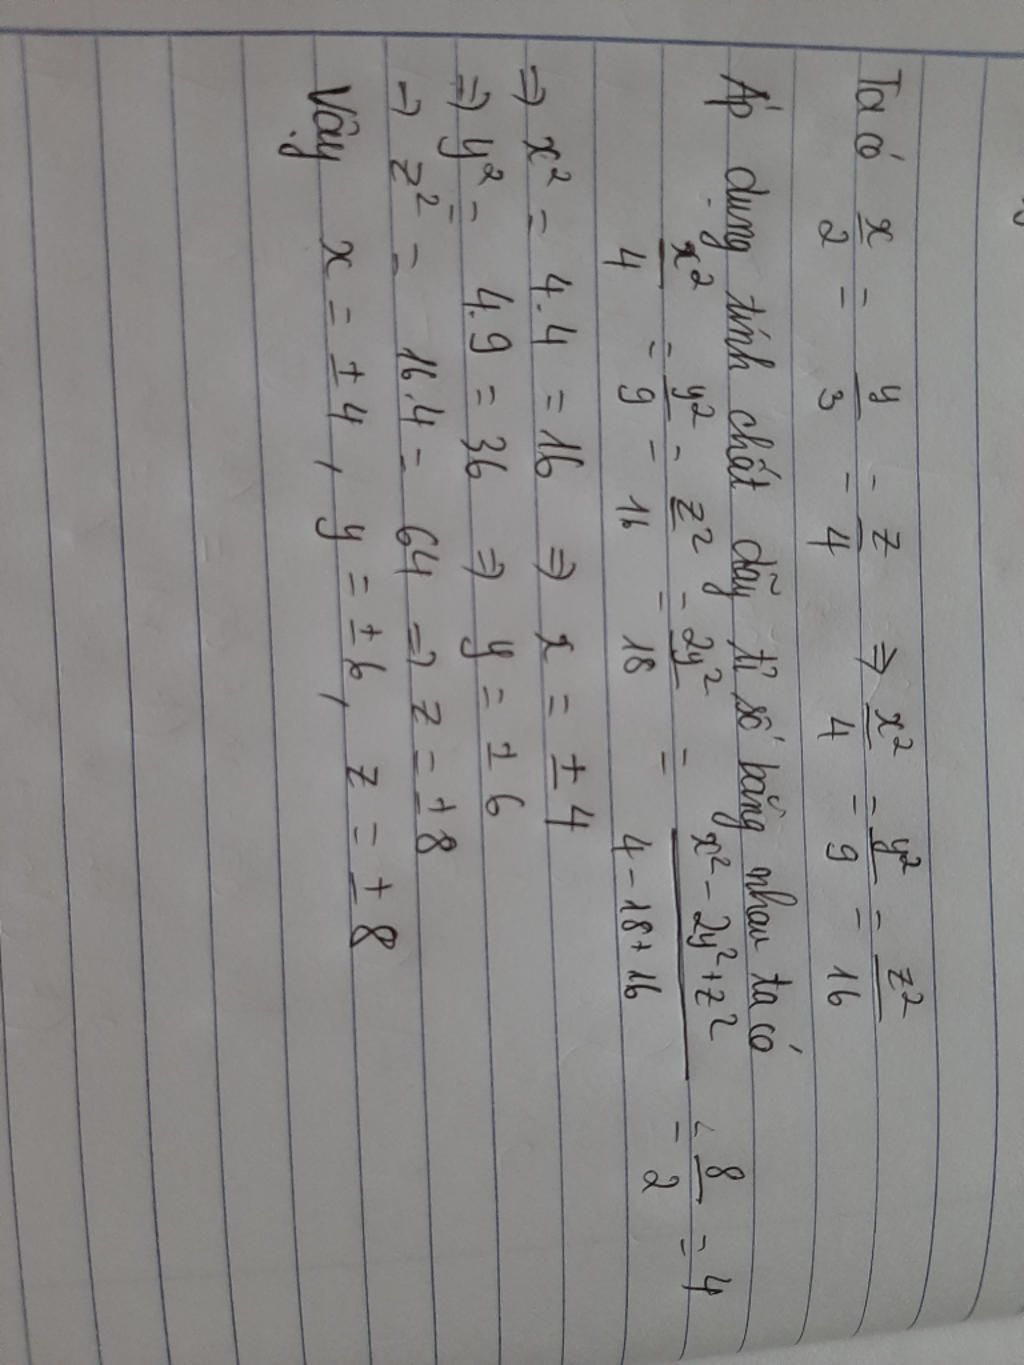 Ta có x/2 = y/3 = z/4 ⇒ x²/4 = y²/9 = z²/16
Áp dụng tính chất dãy tỉ số bằng nhau ta có
x²/4 = y²/9 = z²/16 = 2y²/18 = (x² - 2y² + z²)/(4 - 18 + 16) = 8/2 = 4
⇒ x² = 4.4 = 16 ⇒ x = ± 4
⇒ y² = 4.9 = 36 ⇒ y = ± 6
→ z² = 16.4 = 64 ⇒ z = ± 8
Vậy x = ± 4, y = ± 6, z = ± 8